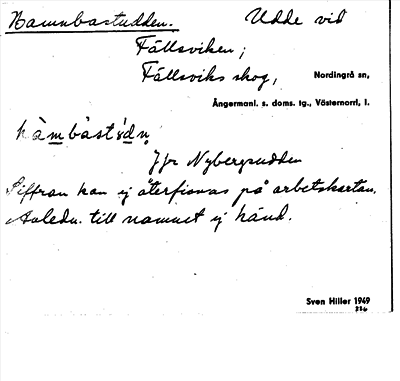 Bamnbastudden. Udde vid
Fällsviken;
Fällsviks skog, Nordingrå sn,
Ångermanl. s. doms. tg., Västernorrl. l.
Jfr Nybergsudden
Siffran kan ej återfinnas på arbetskartan.
Anledn. till namnet ej känd.
Sven Hiller 1949